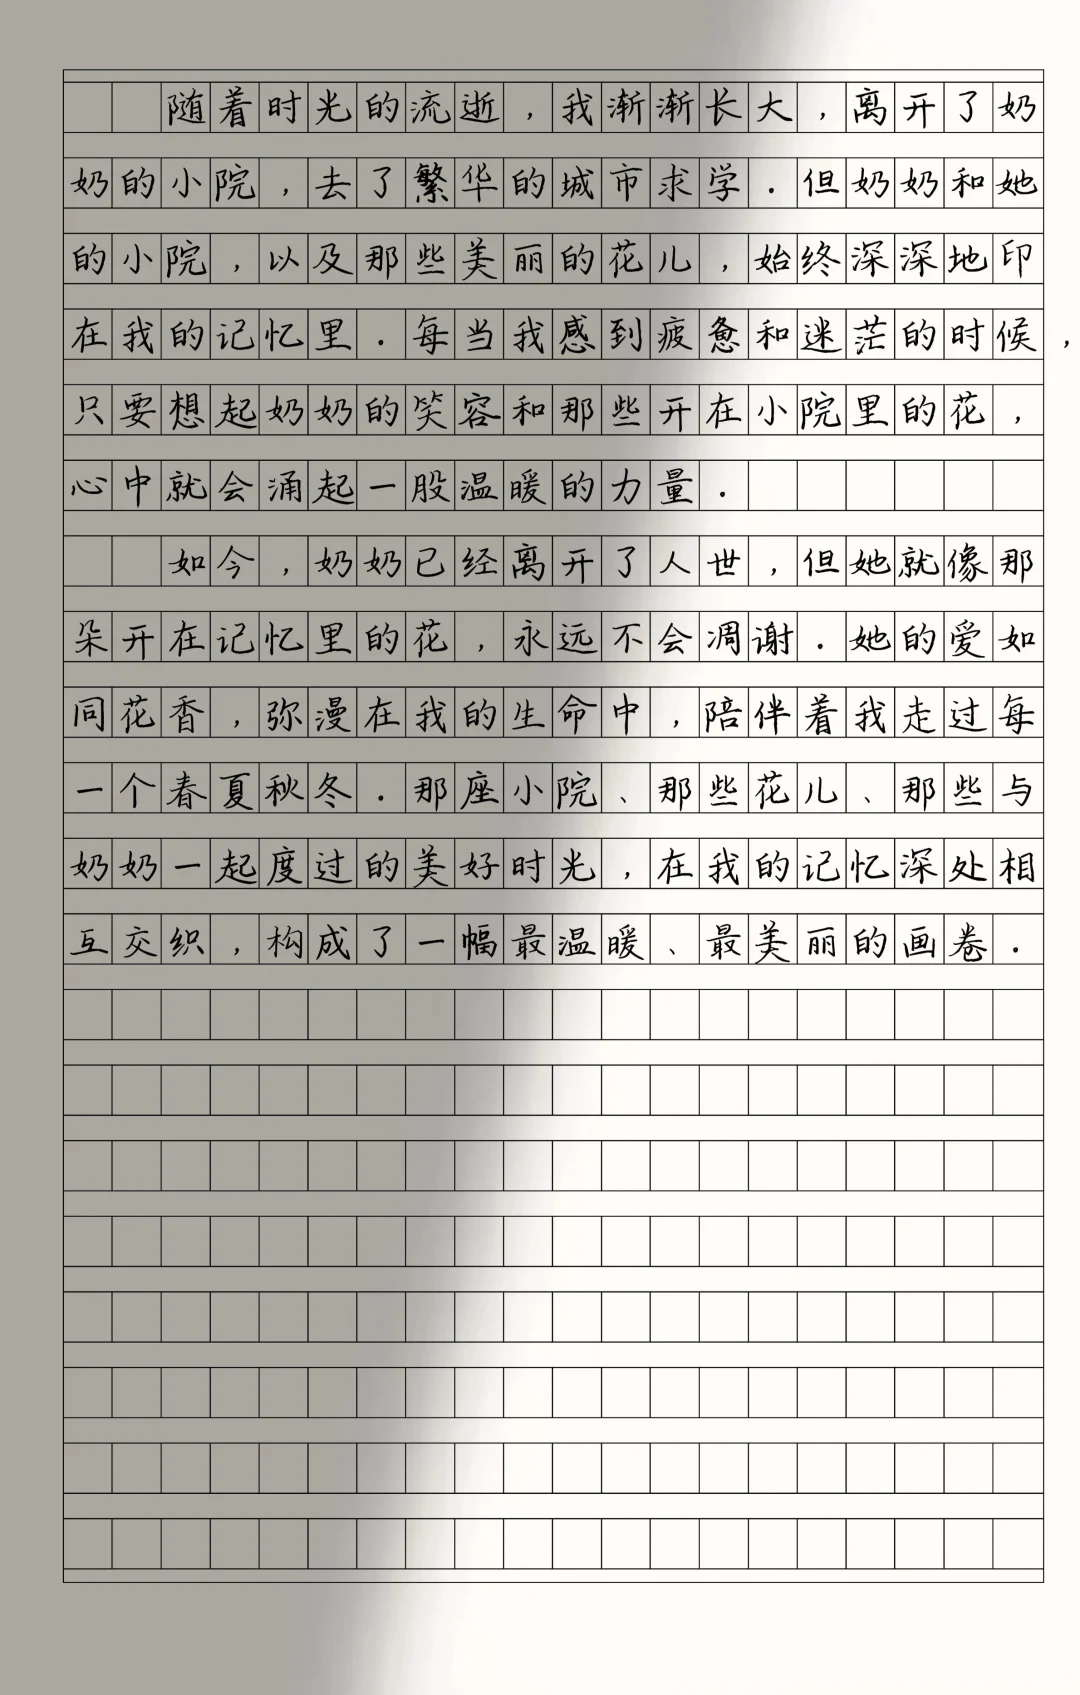 随着时光的流逝，我渐渐长大，离开了奶
奶的小院，去了繁华的城市求学.但奶奶和她
的小院，以及那些美丽的花儿，始终深深地印
在我的记忆里.每当我感到疲惫和迷茫的时候，
只要想起奶奶的笑容和那些开在小院里的花，
心中就会涌起一股温暖的力量.
如今，奶奶已经离开了人世，但她就像那
朵开在记忆里的花，永远不会凋谢.她的爱如
同花香，弥漫在我的生命中，陪伴着我走过每
一个春夏秋冬.那座小院、那些花儿、那些与
奶奶一起度过的美好时光，在我的记忆深处相
互交织，构成了一幅最温暖、最美丽的画卷.